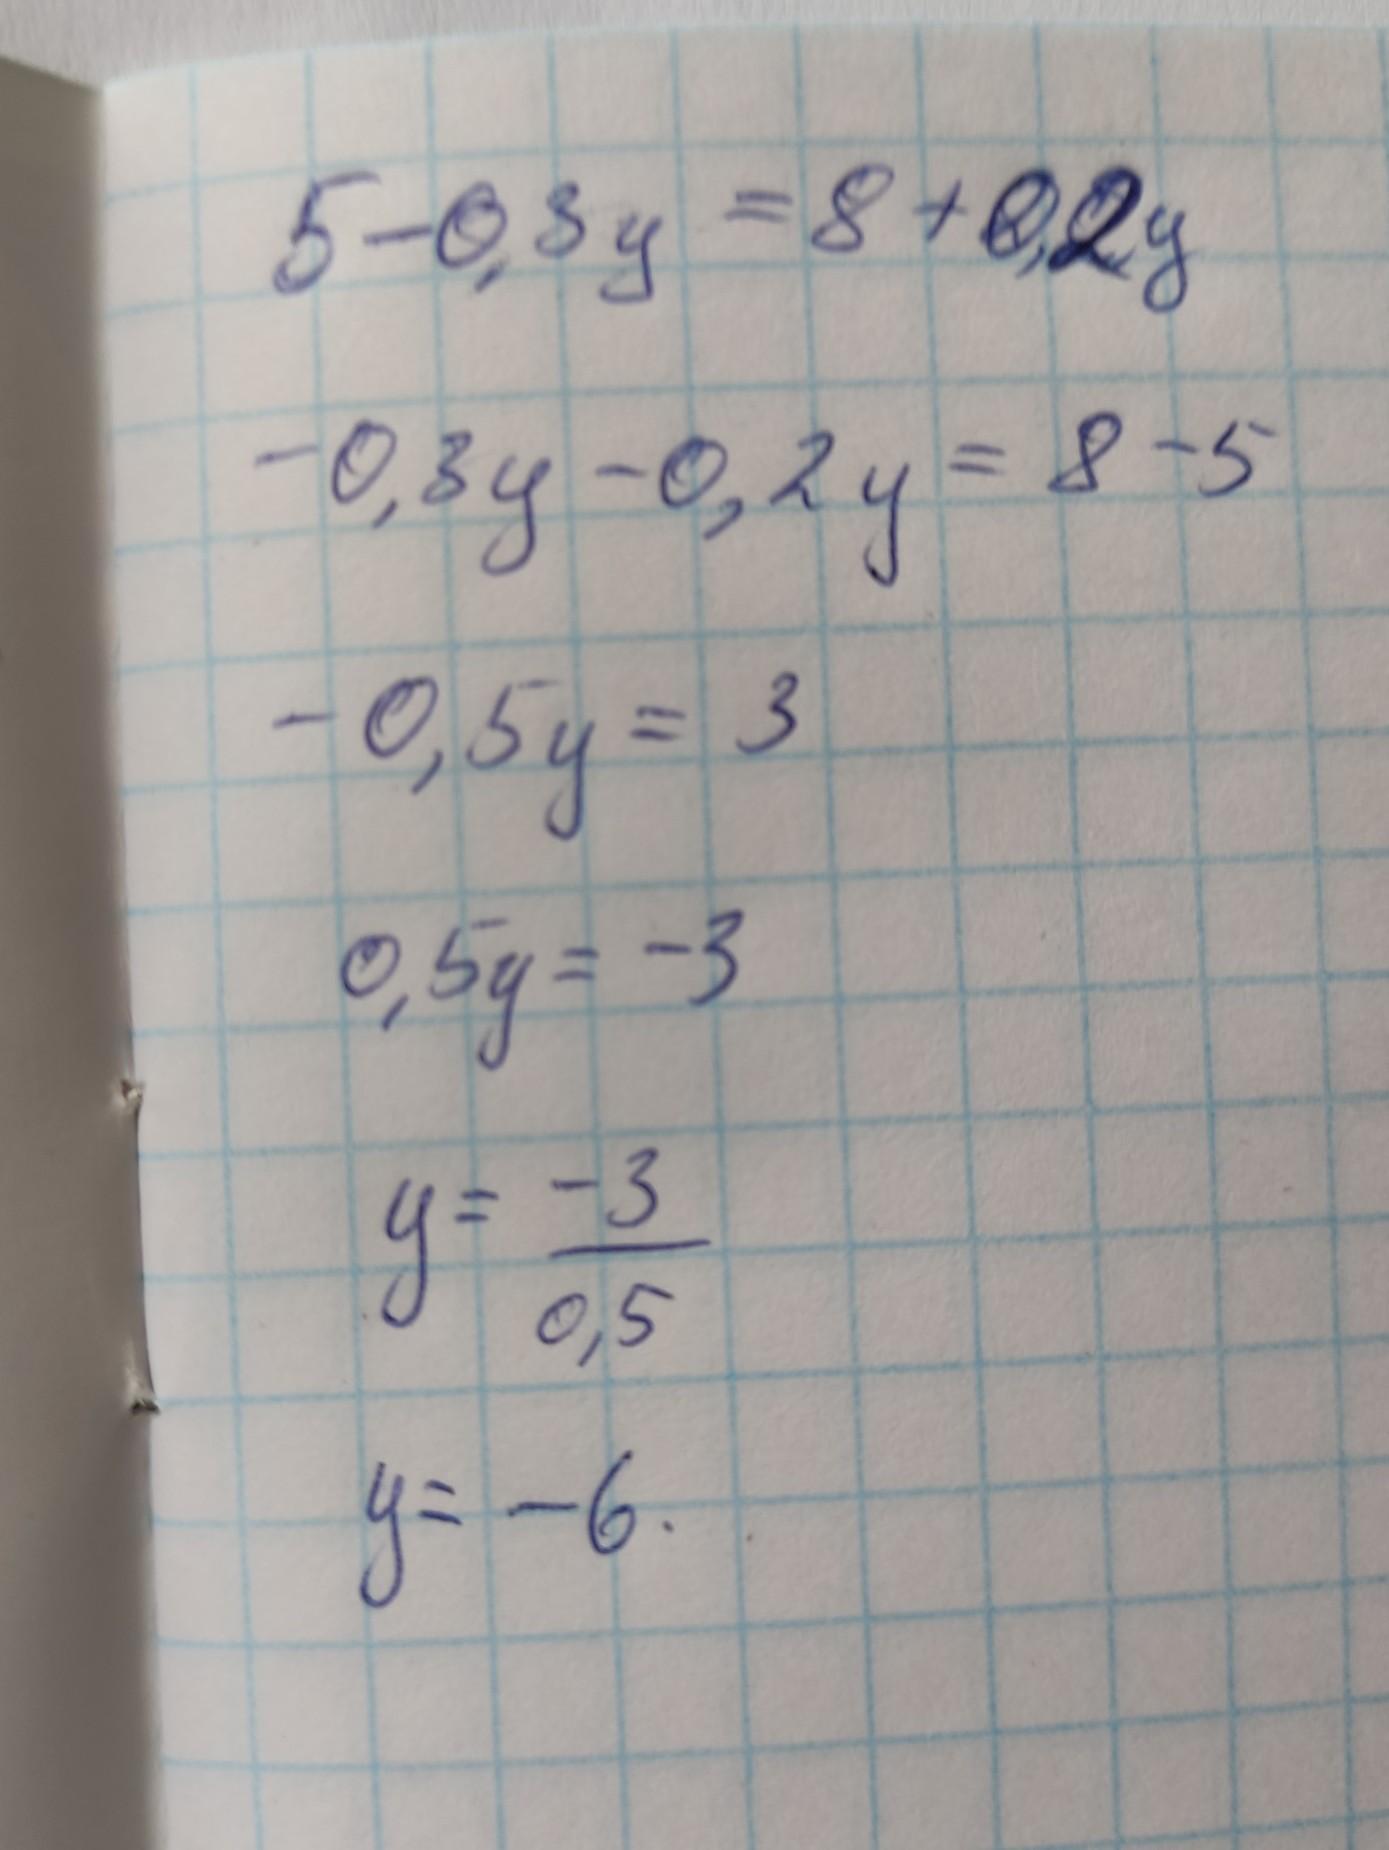 5-0,3y=8+0,2y
-0,3y-0,2y=8-5
-0,5y=3
0,5y=-3
y=-3/0,5
y=-6.